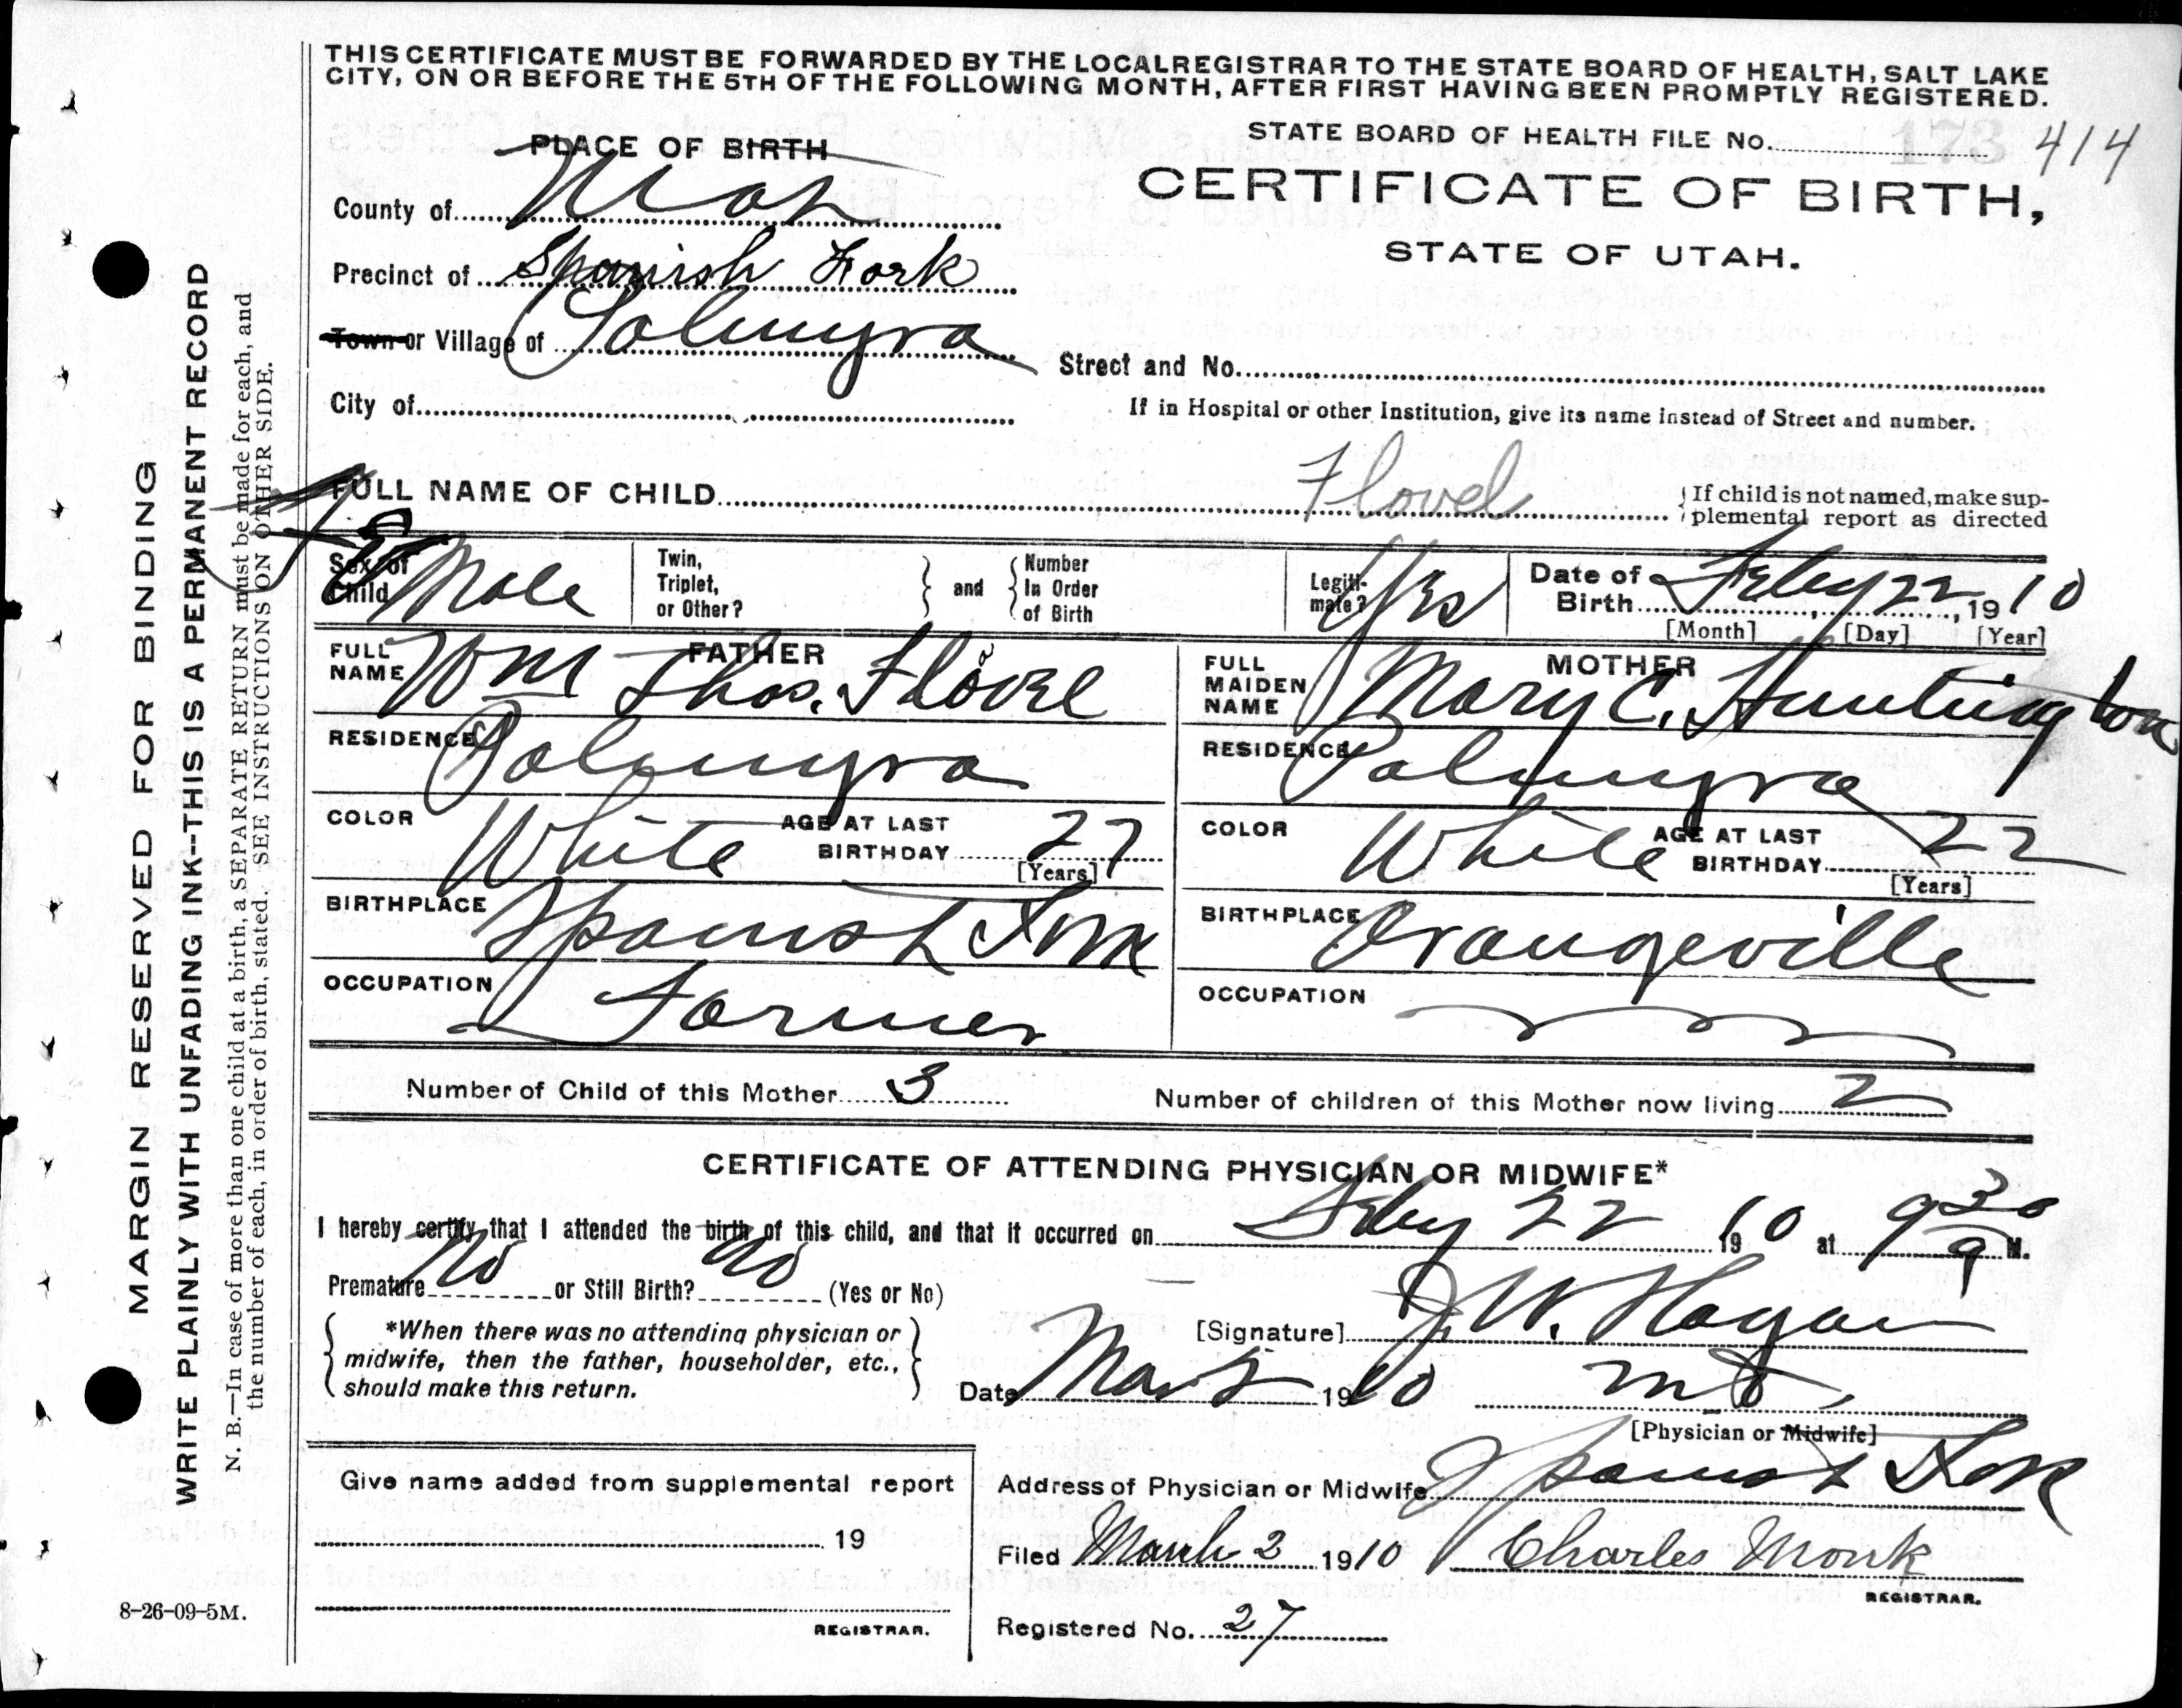 THIS CERTIFICATE MUST BE FORWARDED BY THE LOCAL REGISTRAR TO THE STATE BOARD OF HEALTH, SALT LAKE
CITY, ON OR BEFORE THE 5TH OF THE FOLLOWING MONTH, AFTER FIRST HAVING BEEN PROMPTLY REGISTERED.
PLACE OF BIRTH
STATE BOARD OF HEALTH FILE No. 173 414
County of Utah
CERTIFICATE OF BIRTH,
STATE OF UTAH.
Precinct of Spanish Fork
Town or Village of Palmyra
Street and No.
City of
If in Hospital or other Institution, give its name instead of Street and number.
FULL NAME OF CHILD Flovel
If child is not named, make sup-
plemental report as directed
Sex of Child Male
Twin, Triplet, or Other?
and
Number In Order of Birth
Legiti-mate? Yes
Date of Birth Feby 22, 1910
[Month] [Day] [Year]
FATHER
FULL NAME Wm Thos.
MOTHER
FULL MAIDEN NAME Mary C. Huntington
RESIDENCE Palmyra
RESIDENCE Palmyra
COLOR White AGE AT LAST BIRTHDAY 27 [Years]
COLOR White AGE AT LAST BIRTHDAY 22 [Years]
BIRTHPLACE Spanish Fork
BIRTHPLACE Orangeville
OCCUPATION Farmer
OCCUPATION
Number of Child of this Mother 3
Number of children of this Mother now living 2
CERTIFICATE OF ATTENDING PHYSICIAN OR MIDWIFE*
I hereby certify that I attended the birth of this child, and that it occurred on Feby 22 1910 at 9 30 a M.
Premature No or Still Birth? No (Yes or No)
*When there was no attending physician or
midwife, then the father, householder, etc.,
should make this return.
[Signature] J. W. Hagan
Date Mar 1910 MD,
[Physician or Midwife]
Give name added from supplemental report
19
REGISTRAR.
Address of Physician or Midwife Spanish Fork
Filed March 2 1910 Charles Monk
REGISTRAR.
Registered No. 27
8-26-09-5M.
MARGIN RESERVED FOR BINDING
WRITE PLAINLY WITH UNFADING INK--THIS IS A PERMANENT RECORD
N. B.—In case of more than one child at a birth, a SEPARATE RETURN must be made for each, and
the number of each, in order of birth, stated. SEE INSTRUCTIONS ON OTHER SIDE.